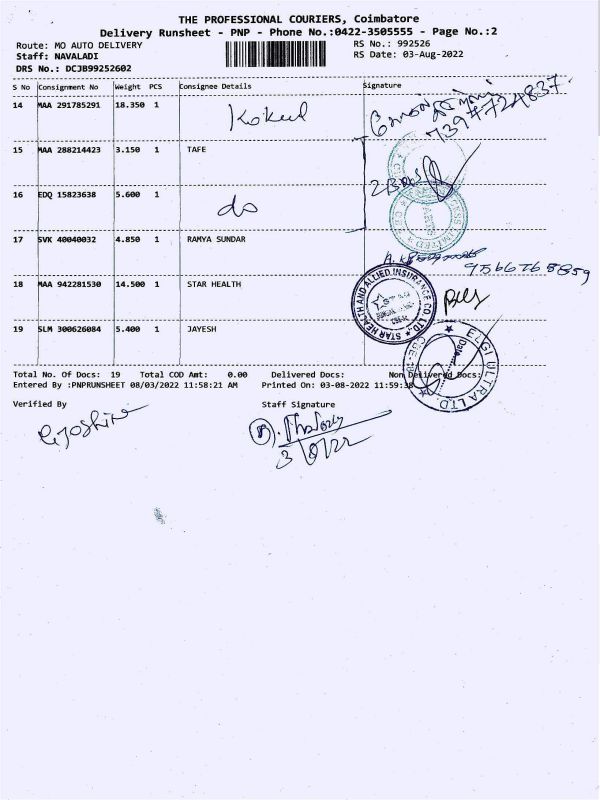 THE PROFESSIONAL COURIERS, Coimbatore
Delivery Runsheet - PNP - Phone No.:0422-3505555 - Page No.:2
Route: MO AUTO DELIVERY
RS No.: 992526
Staff: NAVALADI
RS Date: 03-Aug-2022
DRS No.: DCJB99252602
S No Consignment No Weight PCS Consignee Details Signature
14 MAA 291785291 18.350 1
15 MAA 288214423 3.150 1 TAFE
16 EDQ 15823638 5.600 1 do
17 SVK 40040032 4.850 1 RAMYA SUNDAR
18 MAA 942281530 14.500 1 STAR HEALTH
STAR HEALTH AND ALLIED INSURANCE CO.LTD.
19 SLM 300626084 5.400 1 JAYESH
ELGI ULTRA LTD
Total No. Of Docs: 19 Total COD Amt: 0.00 Delivered Docs: Non Delivered Docs:
Entered By :PNPRUNSHEET 08/03/2022 11:58:21 AM Printed On: 03-08-2022 11:59:38
Verified By Staff Signature
3/8/22